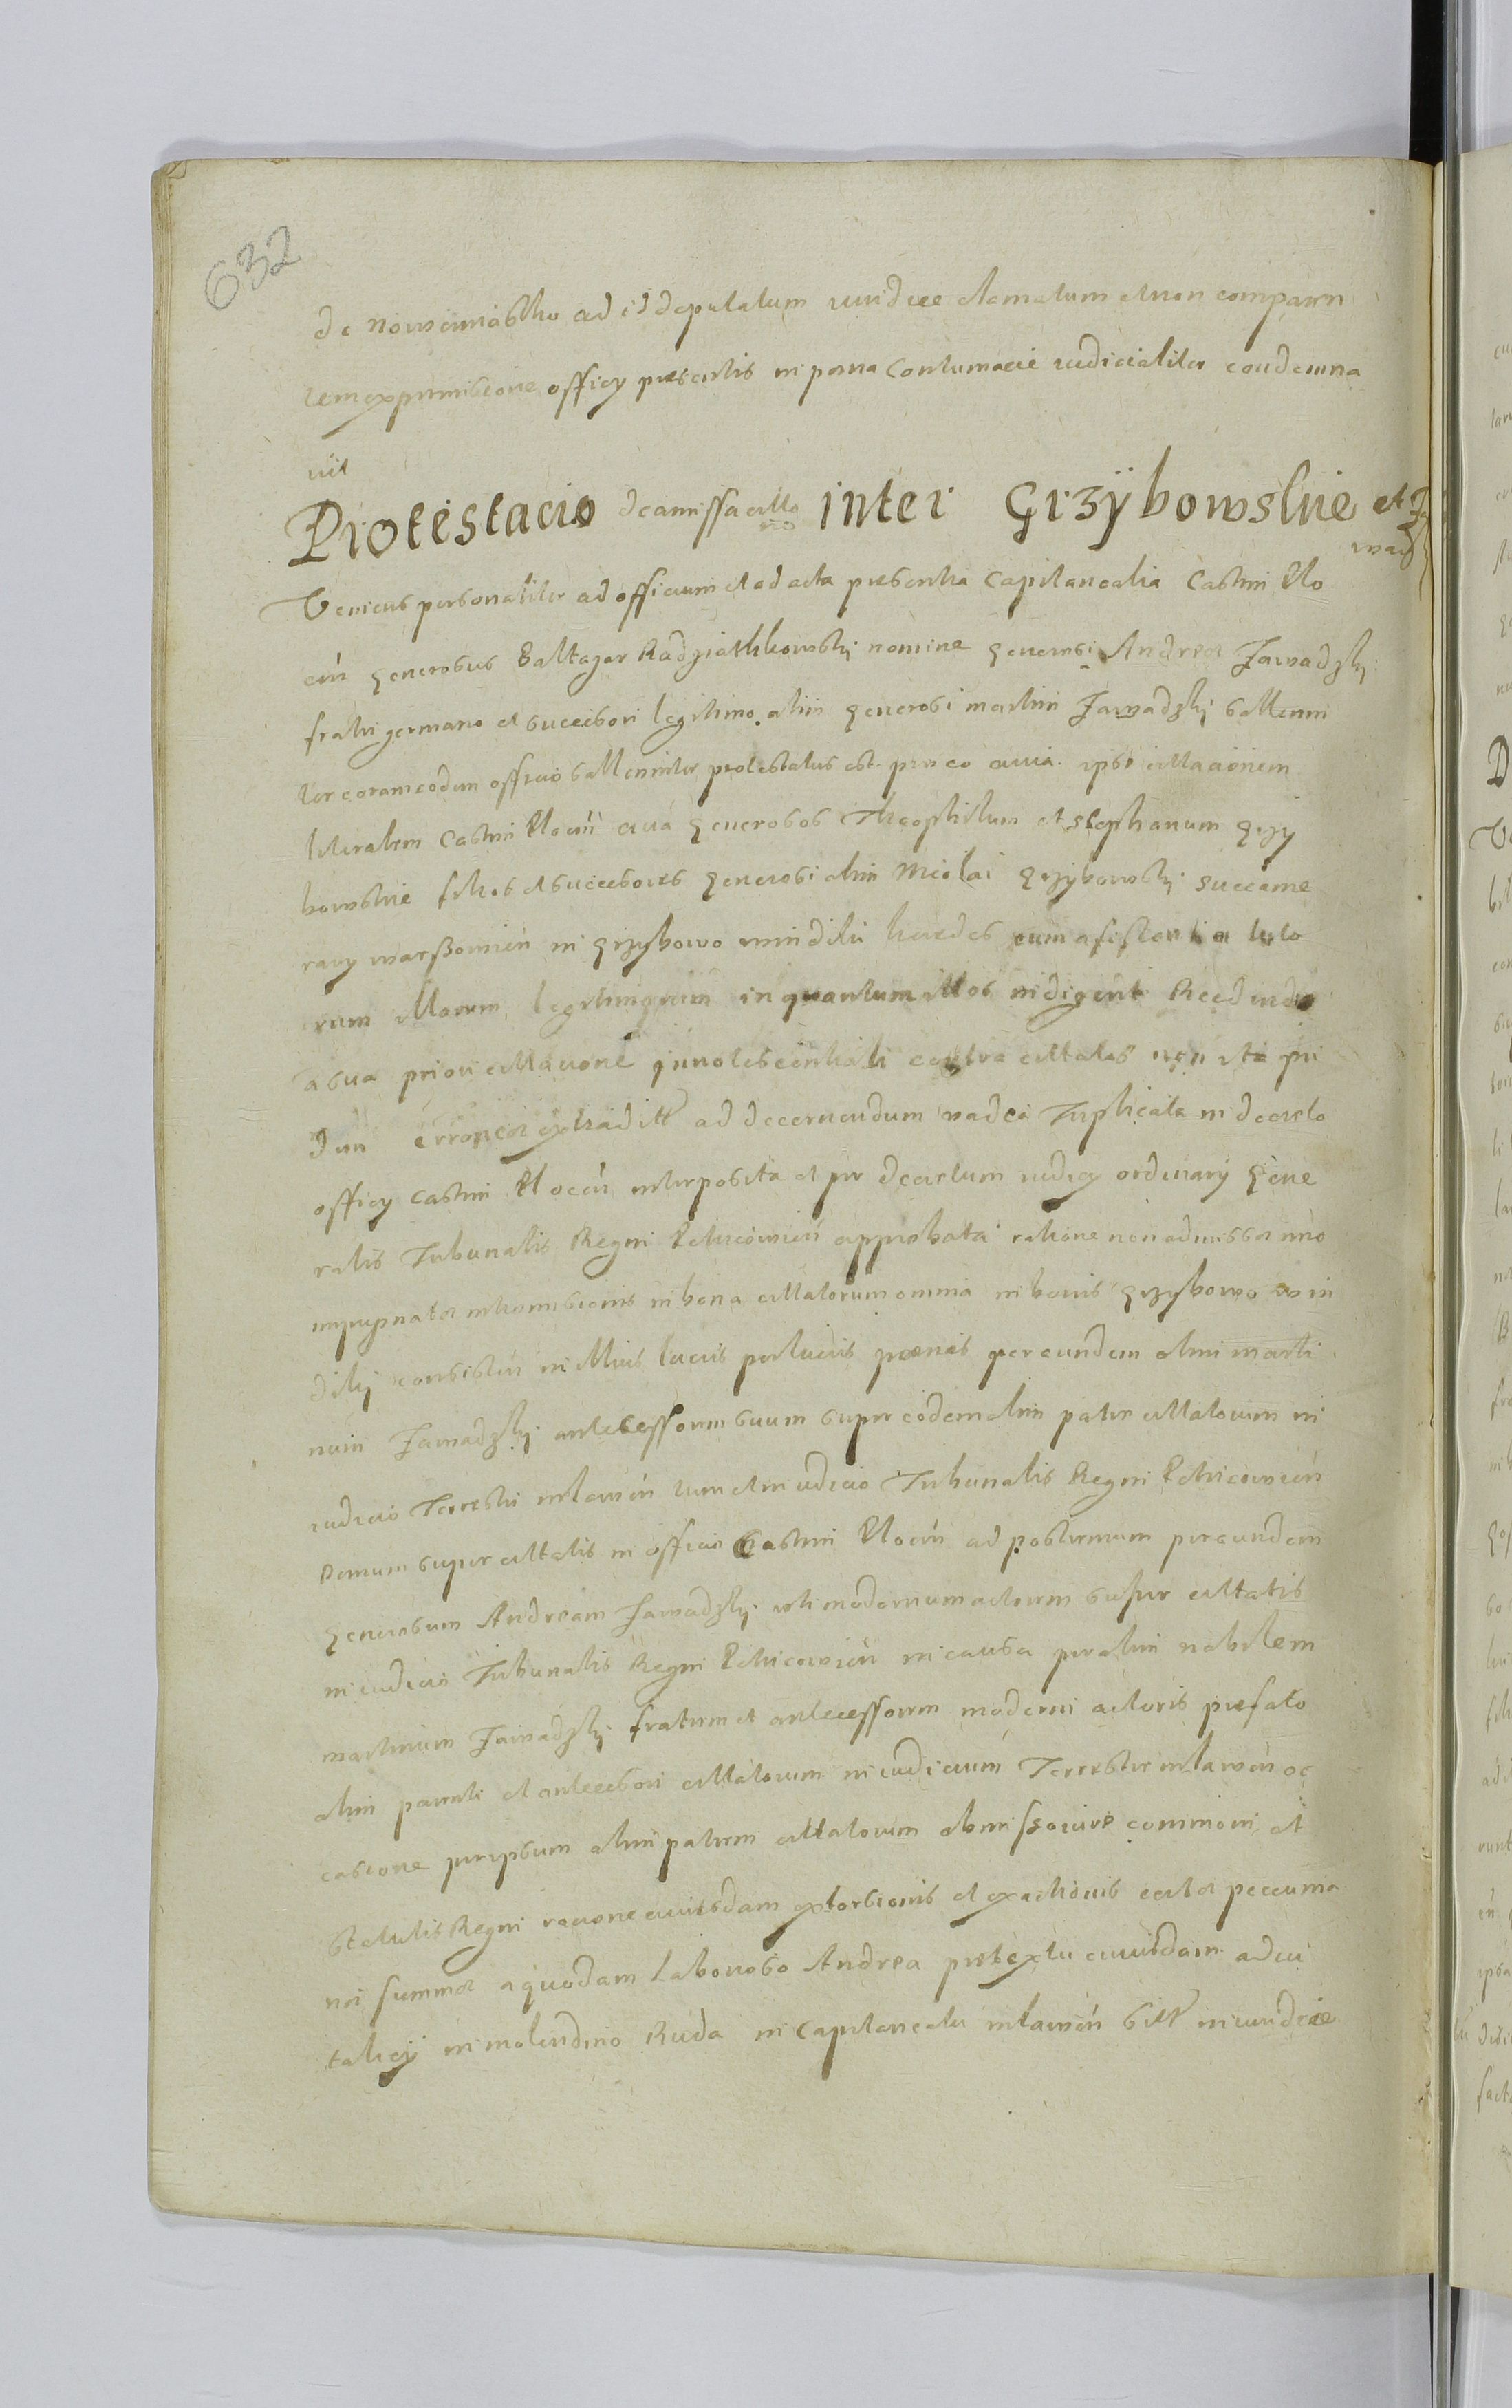 632
de Noweimiastho ad id deputatum iuridice clamatum et non comparen
tem ex permissione officy presentis in pœna Contumacie iudicialiter condemna
uit
Protestacio de amissa citt͠o͠n͠e inter Grzÿbowskie et Za
wadzky
Veniens personaliter ad officium et ad acta presentia Capitanealia Castren Plo
cen̄ generosus Baltazar Radziathkowskÿ nomine generosi Andreæ Zawadzkÿ
fratri germano et successori legitimo olim generosi martini Zawadzkÿ sollenni
ter coram eodem officio sollenniter protestatus est pro eo quia ipse cittacionem
literalem Castren Plocen̄ cū̄a generosos Theophilum et Stephanum grzy
bowskie filios et successores generosi olim Nicolai grzybowskÿ succame
rary warszowien in grzybowo windiki hæredes cum assistentia tuto
rum illorum legitimorum in quantum illos indigent Recedendo
a sua priori cittacione Innotescentiali contra cittatos non ita pri
dem erroneæ extradit̄ ad decernendum vadia Triplicata in decreto
officy castren Plocen̄ interposita et per decretum iudicy ordinarÿ Gene
ralis Tribunalis Regni Petricouien̄ approbata ratione non admissæ imo
impugnatæ intromissionis in bona cittatorum omnia in bonis grzybowo win
dikÿ consisten̄ in illius lucris perlucris pœnas per eundem olim marti
num Zawadzkÿ antecessorem suum super eodem olim patre cittatorum in
iudicio Terrestri mlawen̄ tum et in iudicio Tribunalis Regni Petricowien̄
Demum super cittatis in officio Castren Plocen̄ ad postremum per eundem
generosum Andream Zawadzkÿ uti modernum actorem super cittatis
in iudicio Tribunalis Regni Petricowien̄ in causa per olim nobilem
martinum Zawadzkÿ fratrem et antecessorem moderni actoris præfato
olim parenti et antecessori cittatorum in iudicium Terrestre mlawen̄ oc
casione per ipsum olim patrem cittatorum ob misso iure communi et
Statutis Regni racione cuiusdam extorsionis et exactionis certæ pecunia
riæ summæ a quodam laborioso Andrea pretextu cuiusdam adui
talicÿ in molendino Ruda in Capitaneatu mlawen̄ sitt̄ in iuridice